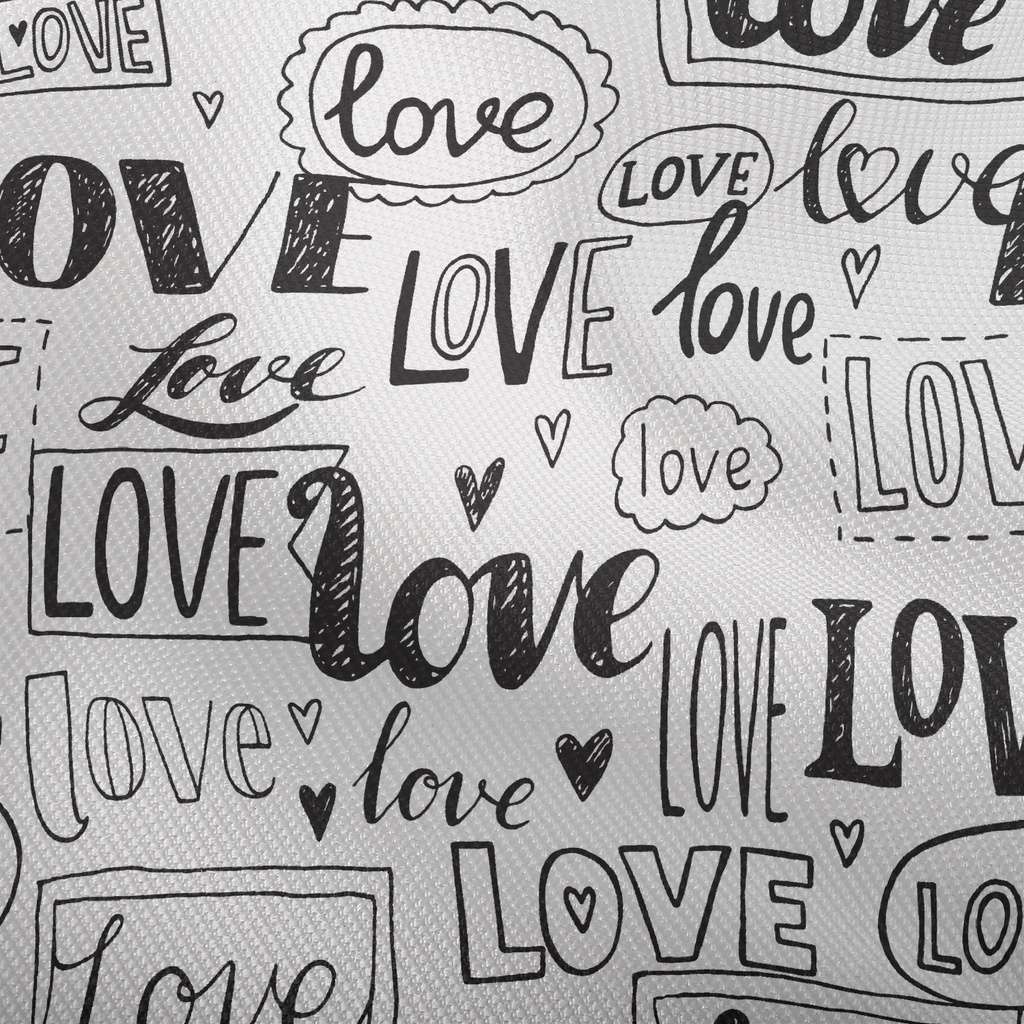 LOVE
love
love
LOVE
love
OVE
LOVE
love
Love
E
LOV
love
LOVE
love
LOVE
LOV
love
love
LOVE
LO
Love